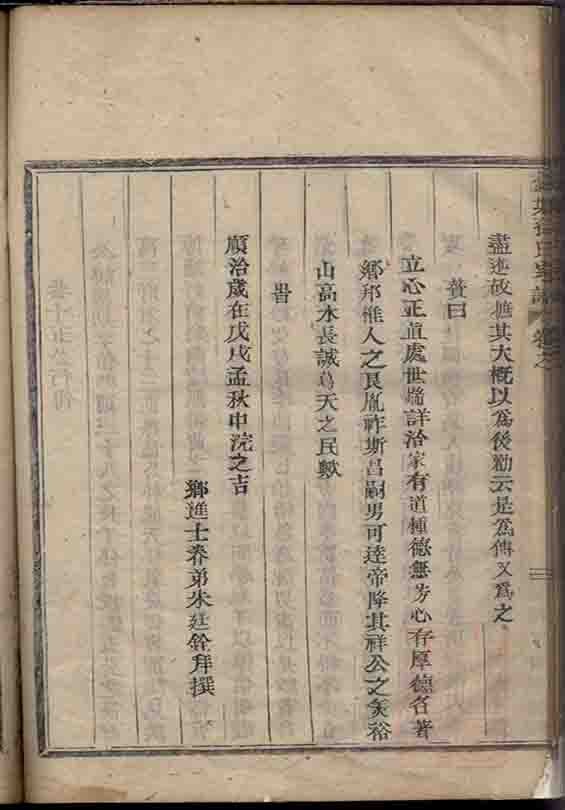 盡述故摭其大概以爲後勸云是爲傳又爲之
贊曰
立心正直處世端詳治家有道種德無方心存厚德名著
鄉邦惟人之良胤祚斯昌嗣男可達帝降其祥公之矣裕
山高水長誠爲天之民歟
旹
順治歲在戊戌孟秋中浣之吉
鄉進士眷弟朱廷銓拜撰
氏宗譜 卷之